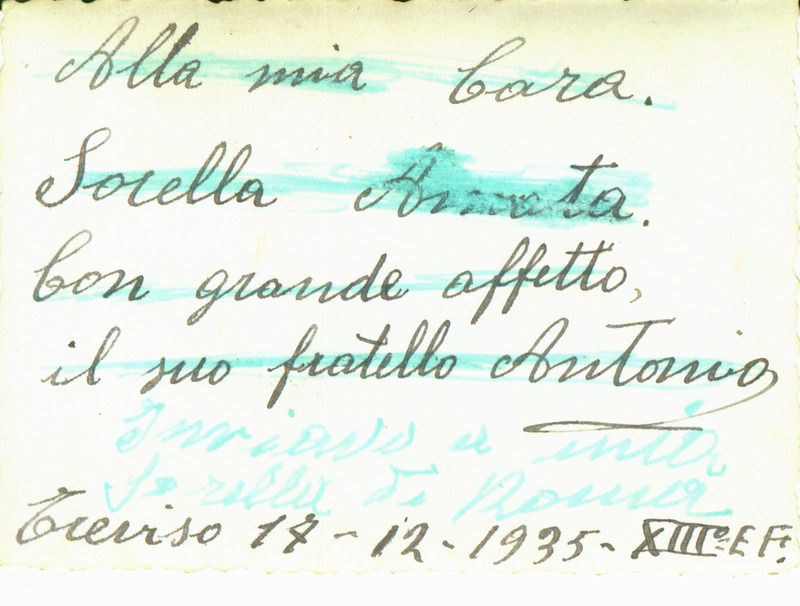 Alla mia Cara.
Sorella Amata.
Con grande affetto,
il suo fratello Antonio
Inviavo a mia
Sorella di Roma
Treviso 17-12-1935-XIIIº E F.